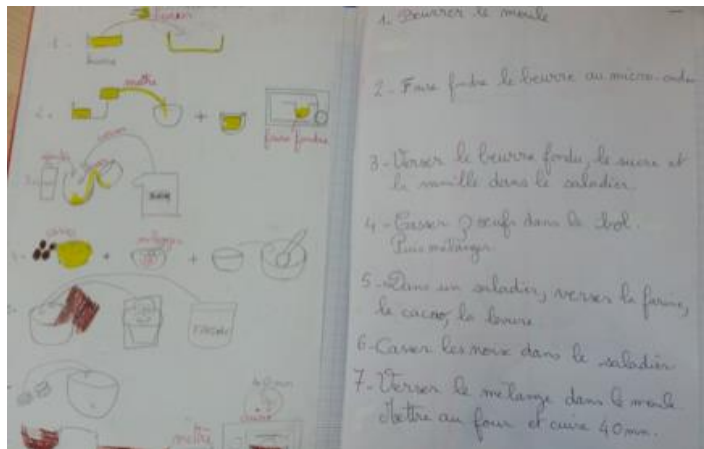 1 -
beurre
2 -
mettre
+
faire fondre
verser
3 -
+
mélanger
+
FARINE
40 mn
mettre
1. Beurrer le moule
2 - Faire fondre le beurre au micro-ondes
3 - Verser le beurre fondu, le sucre et
la vanille dans le saladier
4 - Casser 3 oeufs dans le bol.
Puis mélanger
5 - Dans un saladier, verser la farine,
le cacao, la levure
6 - Casser les noix dans le saladier
7 - Verser le mélange dans le moule
Mettre au four et cuire 40 mn.